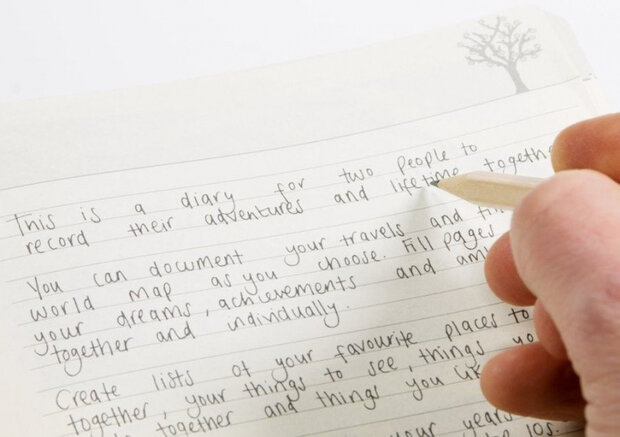 This is a diary for two people to
record their adventures and lifetime together
You can document your travels and
world map as you choose. Fill pages
your dreams, achievements and
together and individually.
Create lists of your favourite places to
together, your things to see, things
together and things you
your years